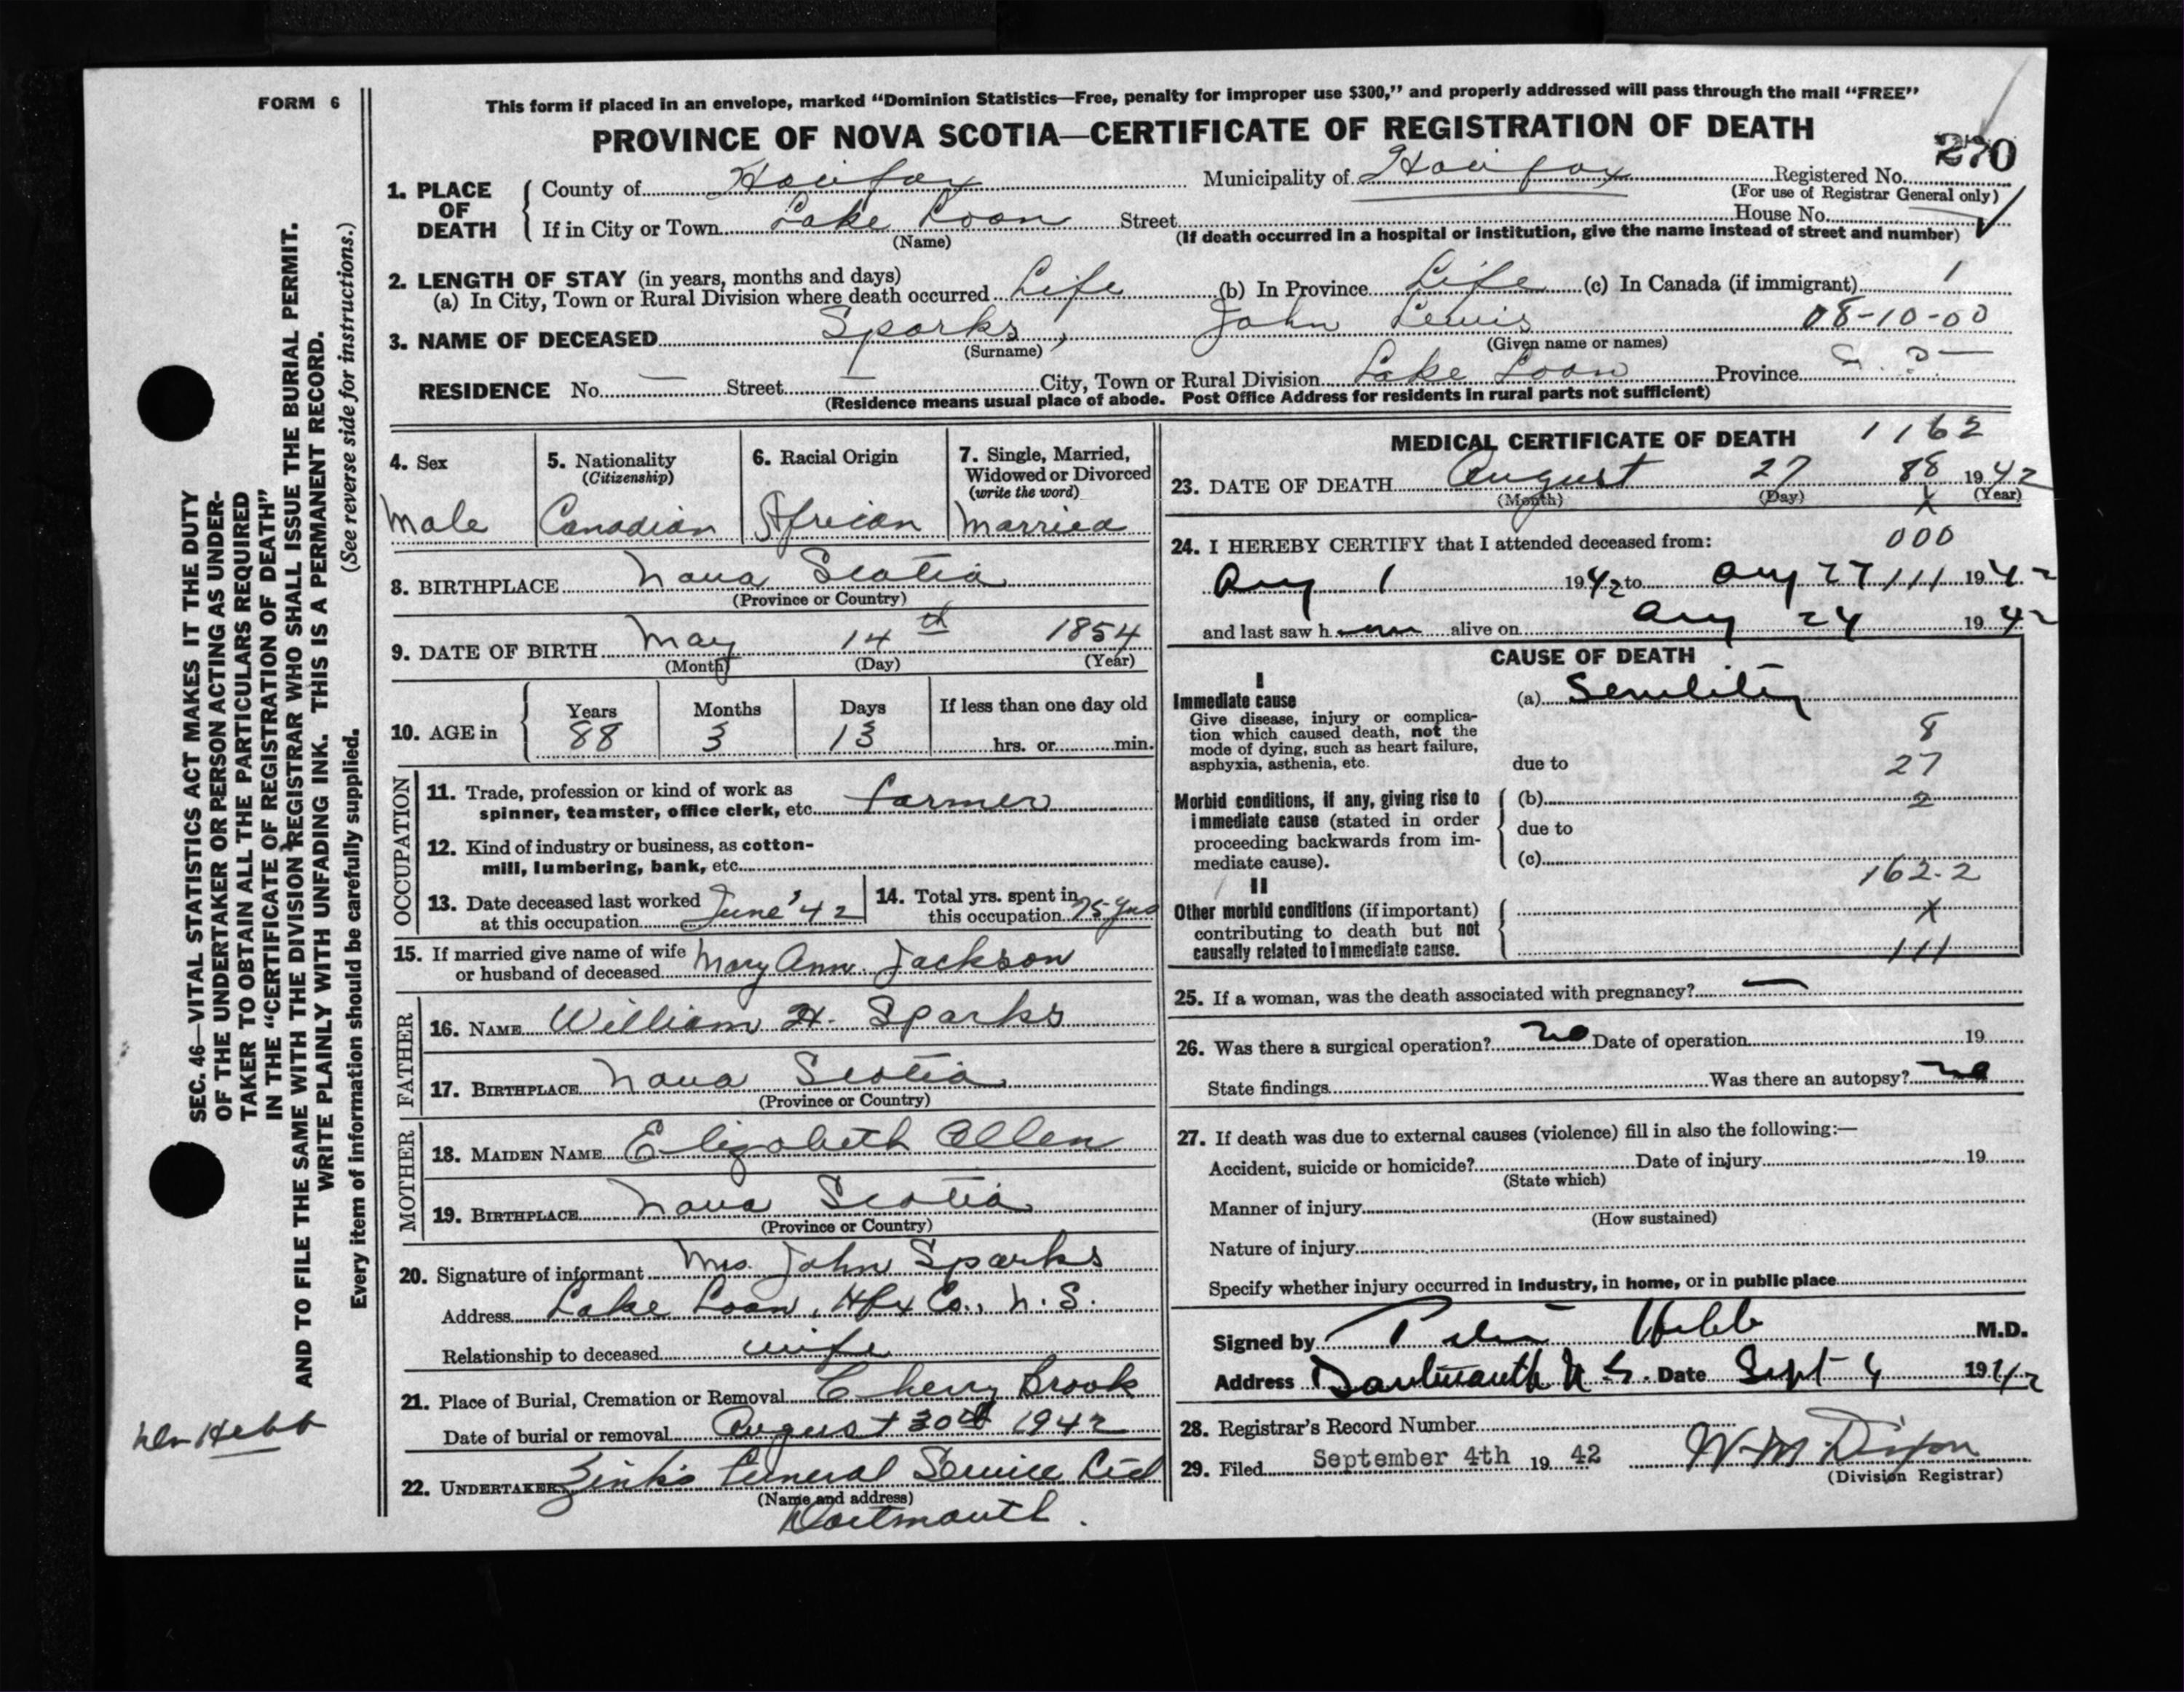 FORM 6
This form if placed in an envelope, marked “Dominion Statistics—Free, penalty for improper use $300,” and properly addressed will pass through the mail “FREE”
PROVINCE OF NOVA SCOTIA—CERTIFICATE OF REGISTRATION OF DEATH
270
1. PLACE OF DEATH
County of Halifax Municipality of Halifax Registered No.
(For use of Registrar General only)
If in City or Town Lake Loon Street House No.
(Name) (If death occurred in a hospital or institution, give the name instead of street and number)
2. LENGTH OF STAY (in years, months and days)
(a) In City, Town or Rural Division where death occurred Life (b) In Province Life (c) In Canada (if immigrant)
3. NAME OF DECEASED Sparks, John Lewis 08-10-00
(Surname) (Given name or names)
RESIDENCE No. — Street — City, Town or Rural Division Lake Loon Province
(Residence means usual place of abode. Post Office Address for residents in rural parts not sufficient)
4. Sex
Male
5. Nationality
(Citizenship)
Canadian
6. Racial Origin
African
7. Single, Married,
Widowed or Divorced
(write the word)
Married
8. BIRTHPLACE Nova Scotia
(Province or Country)
9. DATE OF BIRTH May 14th 1854
(Month) (Day) (Year)
10. AGE in
Years Months Days If less than one day old
88 3 13 hrs. or min.
OCCUPATION
11. Trade, profession or kind of work as
spinner, teamster, office clerk, etc. Farmer
12. Kind of industry or business, as cotton-
mill, lumbering, bank, etc.
13. Date deceased last worked
at this occupation June '42
14. Total yrs. spent in
this occupation 75 yrs
15. If married give name of wife
or husband of deceased Mary Ann Jackson
FATHER
16. NAME William H. Sparks
17. BIRTHPLACE Nova Scotia
(Province or Country)
MOTHER
18. MAIDEN NAME Elizabeth Allen
19. BIRTHPLACE Nova Scotia
(Province or Country)
20. Signature of informant Mrs. John Sparks
Address Lake Loon, Hfx Co., N.S.
Relationship to deceased wife
21. Place of Burial, Cremation or Removal Cherry Brook
Date of burial or removal August 30th 1942
22. UNDERTAKER Zink's Funeral Service Ltd
(Name and address)
Dartmouth.
MEDICAL CERTIFICATE OF DEATH 1162
23. DATE OF DEATH August 27 88 1942
(Month) (Day) (Year)
X
24. I HEREBY CERTIFY that I attended deceased from: 000
Aug 1 1942 to Aug 27 111 1942
and last saw h alive on Aug 24 1942
CAUSE OF DEATH
I
Immediate cause
Give disease, injury or complica-
tion which caused death, not the
mode of dying, such as heart failure,
asphyxia, asthenia, etc.
(a) Senility
8
due to 27
Morbid conditions, if any, giving rise to
immediate cause (stated in order
proceeding backwards from im-
mediate cause).
(b) 2
due to
(c)
162.2
II
Other morbid conditions (if important)
contributing to death but not
causally related to immediate cause.
X
111
25. If a woman, was the death associated with pregnancy? —
26. Was there a surgical operation? no Date of operation 19
State findings Was there an autopsy? no
27. If death was due to external causes (violence) fill in also the following:—
Accident, suicide or homicide? Date of injury 19
(State which)
Manner of injury
(How sustained)
Nature of injury
Specify whether injury occurred in Industry, in home, or in public place
Signed by Hebb M.D.
Address Dartmouth N.S. Date Sept 4 1942
28. Registrar's Record Number
29. Filed September 4th 19 42 W. M. Dixon
(Division Registrar)
SEC. 46—VITAL STATISTICS ACT MAKES IT THE DUTY
OF THE UNDERTAKER OR PERSON ACTING AS UNDER-
TAKER TO OBTAIN ALL THE PARTICULARS REQUIRED
IN THE “CERTIFICATE OF REGISTRATION OF DEATH”
AND TO FILE THE SAME WITH THE DIVISION REGISTRAR WHO SHALL ISSUE THE BURIAL PERMIT.
WRITE PLAINLY WITH UNFADING INK. THIS IS A PERMANENT RECORD.
(See reverse side for instructions.)
Every item of information should be carefully supplied.
Hebb